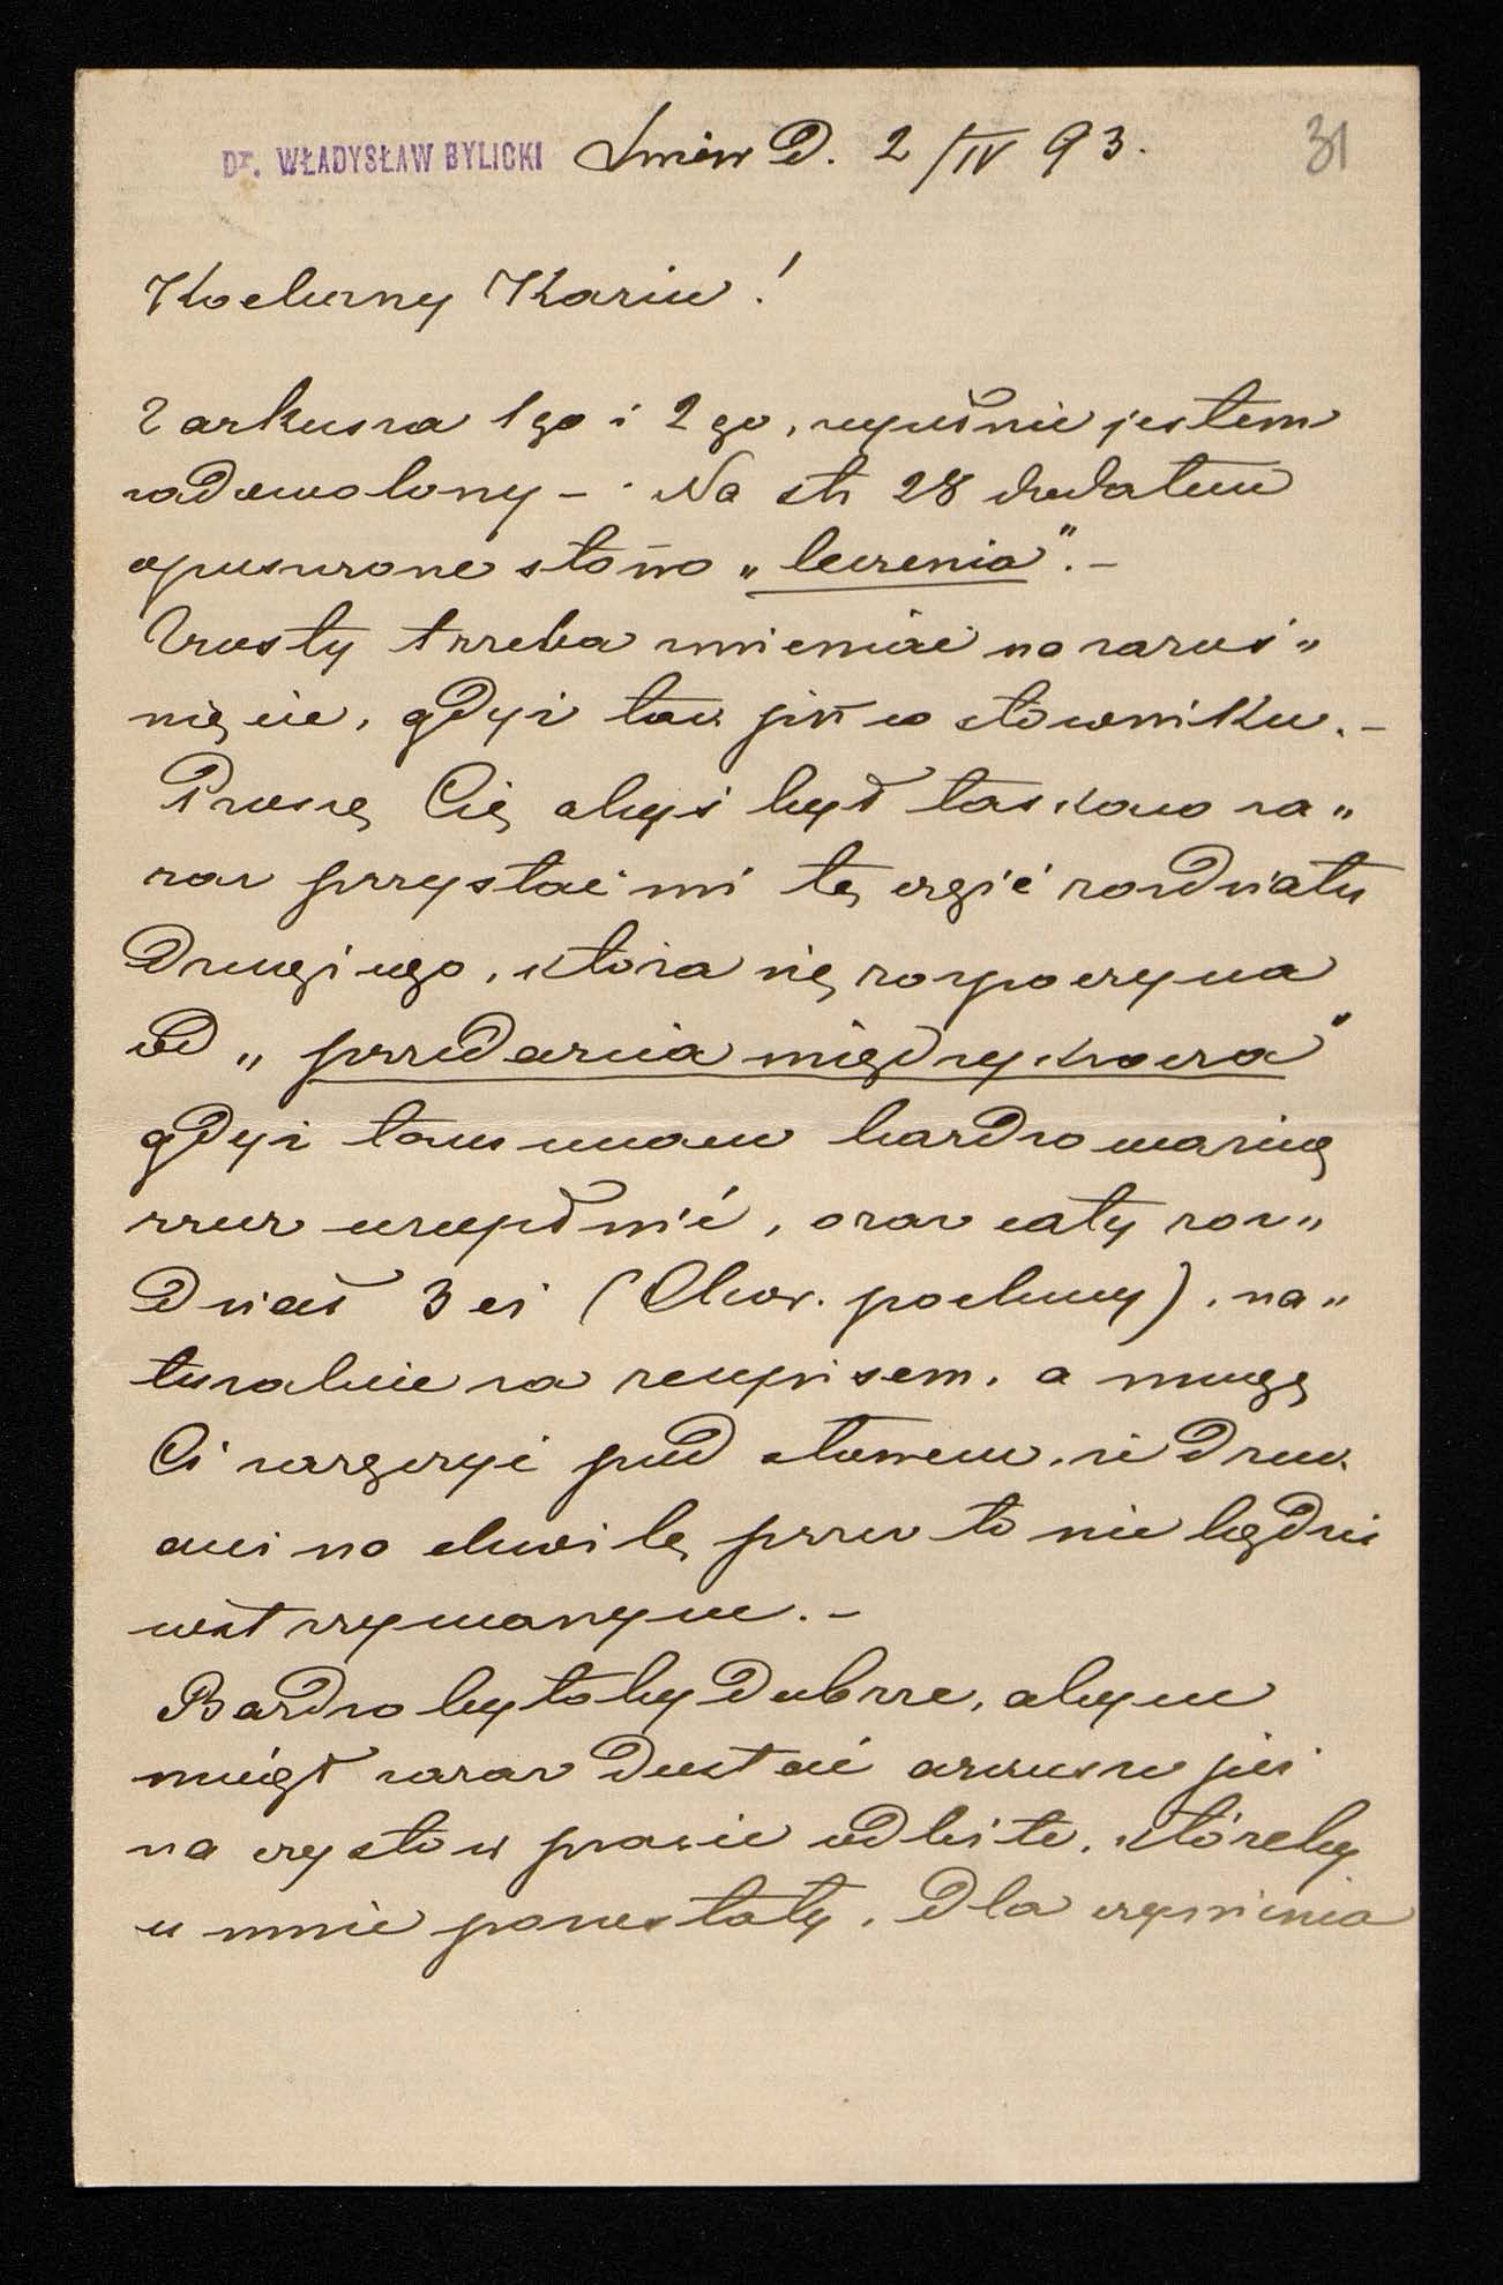 Dr. WŁADYSŁAW BYLICKI Lwów d. 2/IV 93. 31
Kochany Kaziu!
Z arkusza 1go i 2go, zupełnie jestem
zadowolony – Na str 28 dodałem
opuszczone słowo „leczenia". –
Zrosty trzeba zmieniać na zaroś„
nięcie, gdyż tak jest w słowniku. –
Proszę Cię abyś był łaskaw za„
raz przysłać mi tę część rozdziału
drugiego, która się rozpoczyna
od „przedarcia międzykrocza"
gdyż tam mam bardzo ważną
rzecz uzupełnić, oraz cały roz„
dział 3ci (Chor. pochwy), na„
turalnie za recepisem, a mogę
Ci zaręczyć pod słowem, że druk
ani na chwilę przez to nie będzie
wstrzymanym. –
Bardzo byłoby dobrze, abym
mógł zaraz dostać arkusze już
na czysto w prasie odbite, któreby
u mnie pozostały, dla czynienia